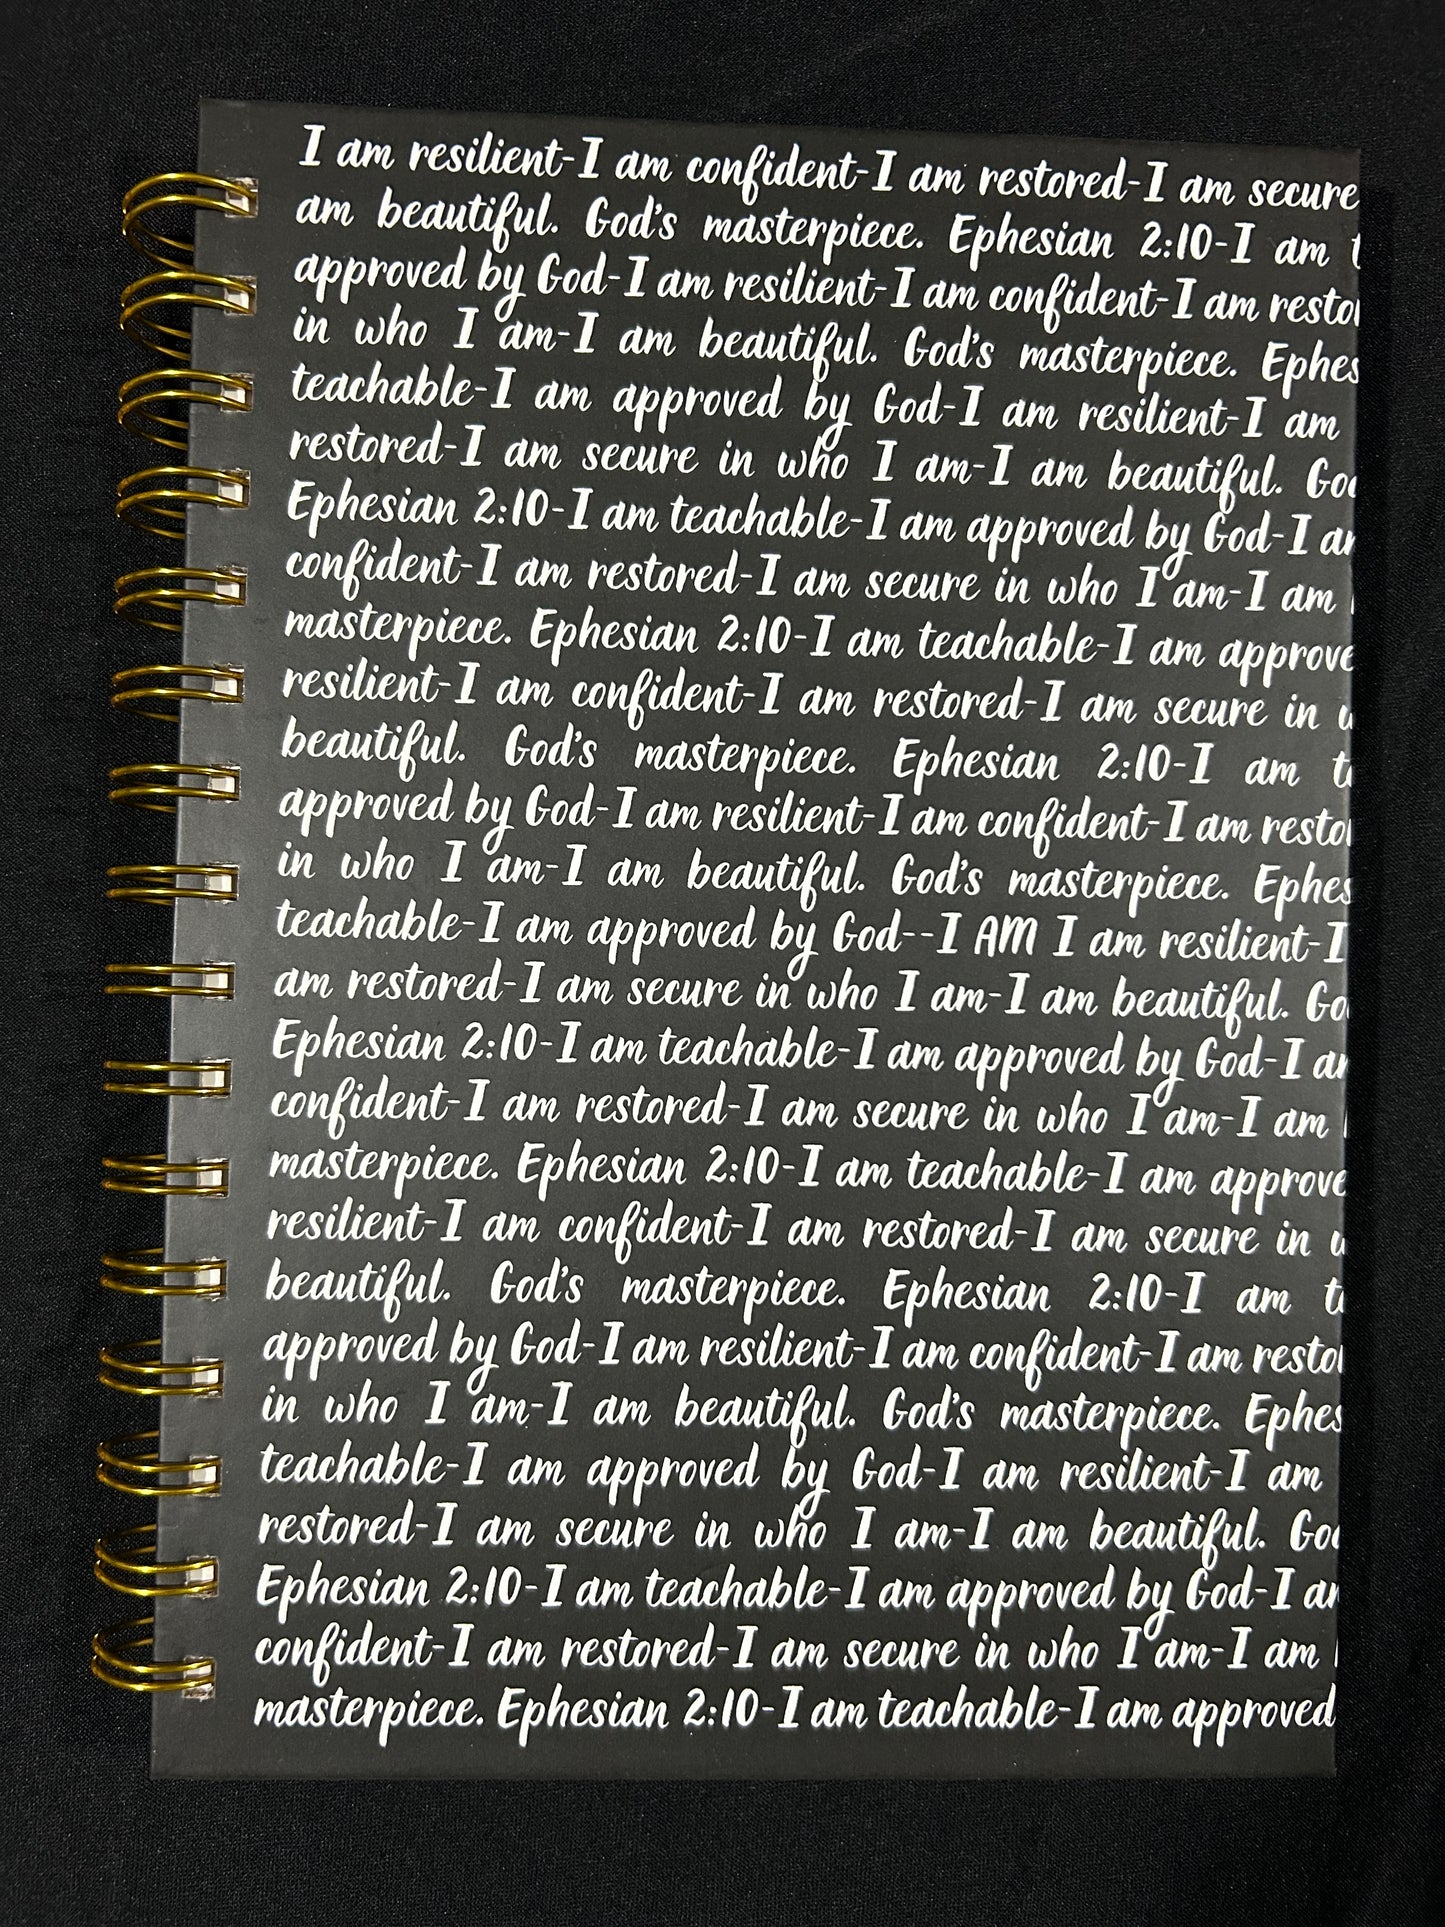 I am resilient-I am confident-I am restored-I am secure
am beautiful. God's masterpiece. Ephesian 2:10-I am t
approved by God-I am resilient-I am confident-I am resto
in who I am-I am beautiful. God's masterpiece. Ephes
teachable-I am approved by God-I am resilient-I am
restored-I am secure in who I am-I am beautiful. Go
Ephesian 2:10-I am teachable-I am approved by God-I a
confident-I am restored-I am secure in who I am-I am
masterpiece. Ephesian 2:10-I am teachable-I am approve
resilient-I am confident-I am restored-I am secure in
beautiful. God's masterpiece. Ephesian 2:10-I am t
approved by God-I am resilient-I am confident-I am resto
in who I am-I am beautiful. God's masterpiece. Ephes
teachable-I am approved by God--I AM I am resilient-I
am restored-I am secure in who I am-I am beautiful. Go
Ephesian 2:10-I am teachable-I am approved by God-I a
confident-I am restored-I am secure in who I am-I am
masterpiece. Ephesian 2:10-I am teachable-I am approve
resilient-I am confident-I am restored-I am secure in
beautiful. God's masterpiece. Ephesian 2:10-I am t
approved by God-I am resilient-I am confident-I am resto
in who I am-I am beautiful. God's masterpiece. Ephes
teachable-I am approved by God-I am resilient-I am
restored-I am secure in who I am-I am beautiful. Go
Ephesian 2:10-I am teachable-I am approved by God-I a
confident-I am restored-I am secure in who I am-I am
masterpiece. Ephesian 2:10-I am teachable-I am approved